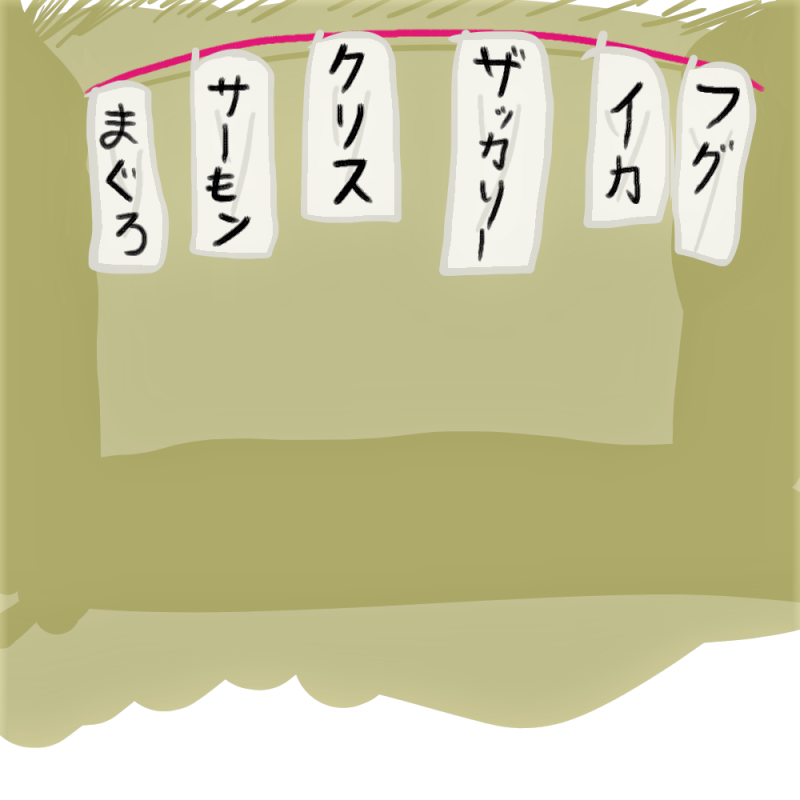 まぐろ
サーモン
クリス
ザッカリー
イカ
フグ